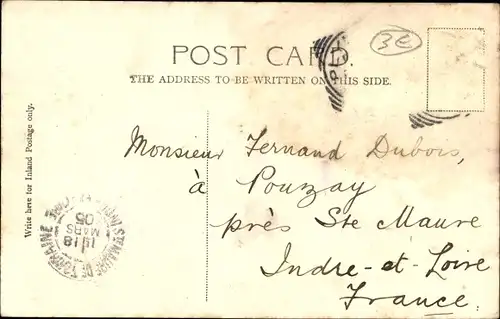 POST CARD.
THE ADDRESS TO BE WRITTEN ON THIS SIDE.
3E
Write here for Inland Postage only.
Monsieur Fernand Dubois,
à Pouzay
près Ste Maure
Indre-et-Loire
France.
STE MAURE DE TOURAINE
18
MARS
05